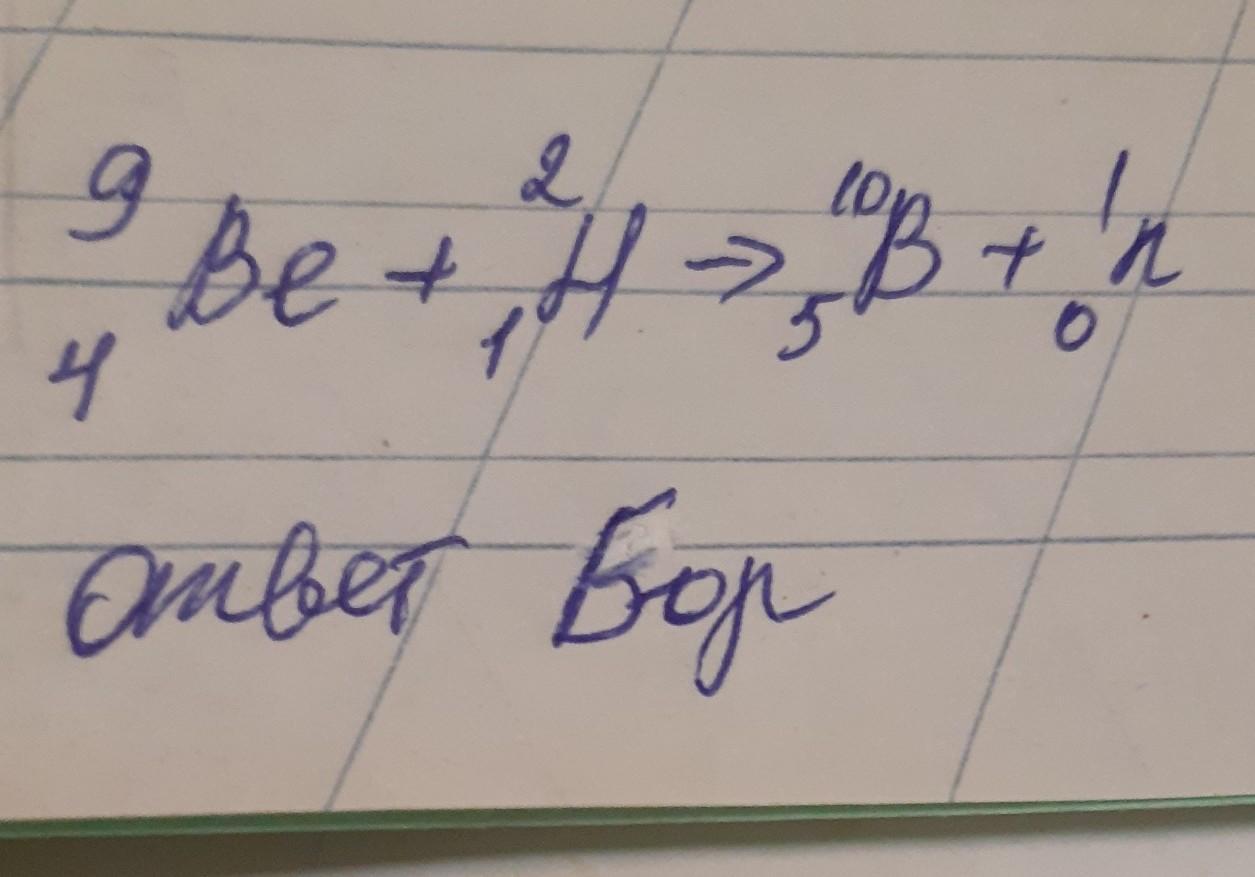 ⁹₄Be + ²₁H → ¹⁰₅B + ¹₀n
ответ Бор